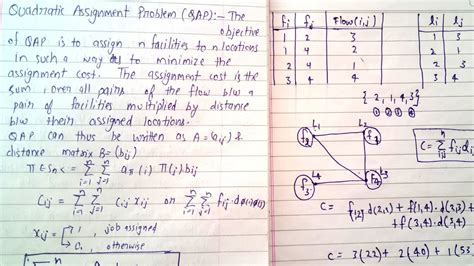 Quadratic Assignment Problem (QAP):- The
objective
of QAP is to assign n facilities to n locations
in such a way as to minimize the
assignment cost. The assignment cost is the
sum, over all pairs of the flow b/w a
pair of facilities multiplied by distance
b/w their assigned locations.
QAP can thus be written as A=(aij) &
distance matrix B=(bij)
xij = { 1, job assigned
0, otherwise
fi fj Flow(i,j)
1 2 3
1 4 2
2 4 1
3 4 4
{2, 1, 4, 3}
① ② ③ ④
L1 L2
f2 f1
L3 L4
f3 f4
C = Σ fij.dij
C = f(1,2).d(2,1) + f(1,4).d(2,3)
+ f(3,4).d(3,4)
C = 3(22) + 2(40) + 1(53